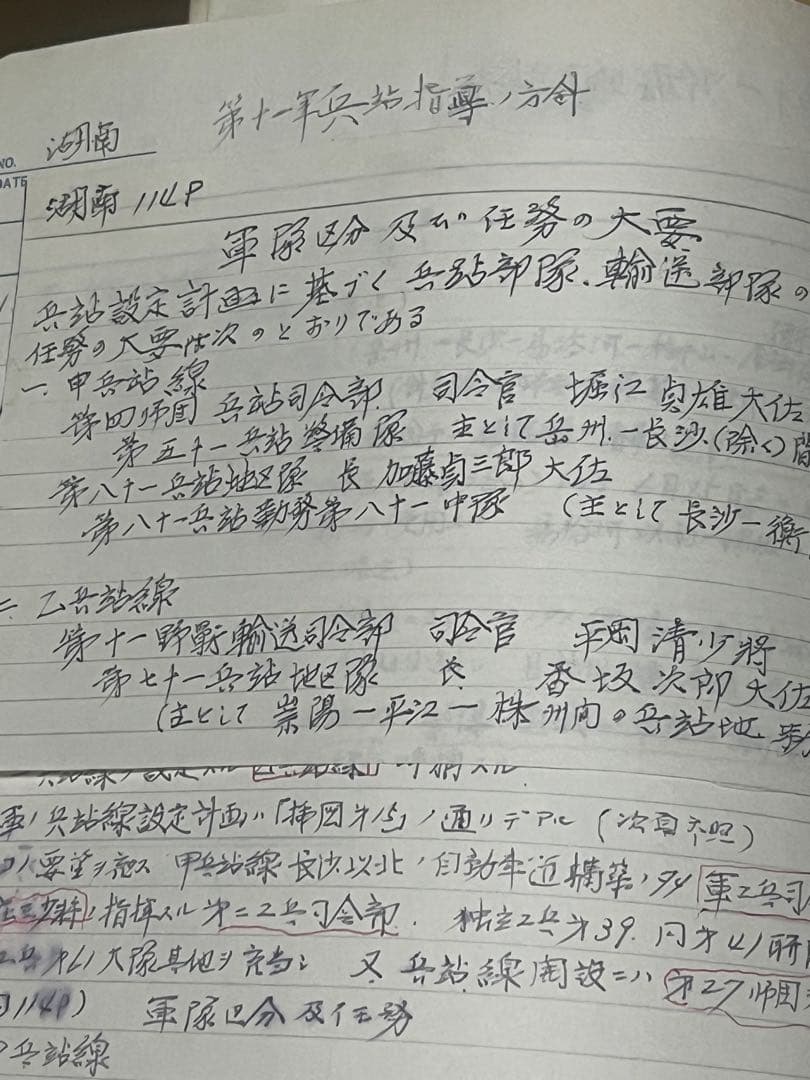 第十一軍兵站指導ノ方針
NO. 湖南
DATE
湖南114P
軍隊区分及びの任務の大要
兵站設定計画に基づく兵站部隊、輸送部隊の
任務の大要は次のとおりである
一、甲兵站線
第四師団兵站司令部 司令官 堀江貞雄大佐
第五十一兵站警備隊 主として岳州ー長沙(除く)間
第八十一兵站地区隊 長 加藤貞三郎大佐
第八十一兵站勤務第八十一中隊 (主として長沙ー衡
二、乙兵站線
第十一野戦輸送司令部 司令官 平岡清少将
第七十一兵站地区隊 長 香坂次郎大佐
(主として崇陽ー平江ー株洲間の兵站地
軍ノ兵站線設定計画ハ「挿図第15」ノ通リデアル (次頁参照)
要望ヲ 甲兵站線長沙以北ノ自動車道構築ノタメ軍工兵司
少将ノ指揮スル第二工兵司令部. 独立工兵第39. 同第41聯
大隊其他ヲ充当シ 又兵站線開設ニハ第27師団
114P) 軍隊区分及任務
兵站線